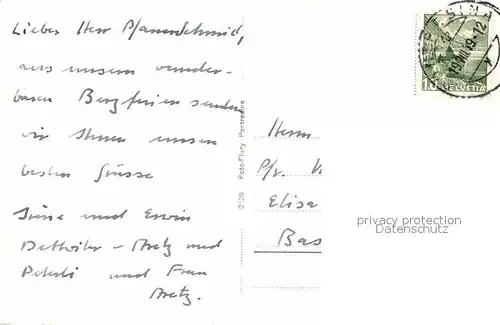 Lieber Herr Pfannenschmid,
aus unseren wunder-
baren Bergferien senden
wir Ihnen unsere
besten Grüsse
und Erwin
Dettwiler - Aretz und
Peterli und Frau
Aretz.
2128 Foto Flury Pontresina
Herrn
P/r.
Elisa
Bas
HELVETIA
10
privacy protection
Datenschutz